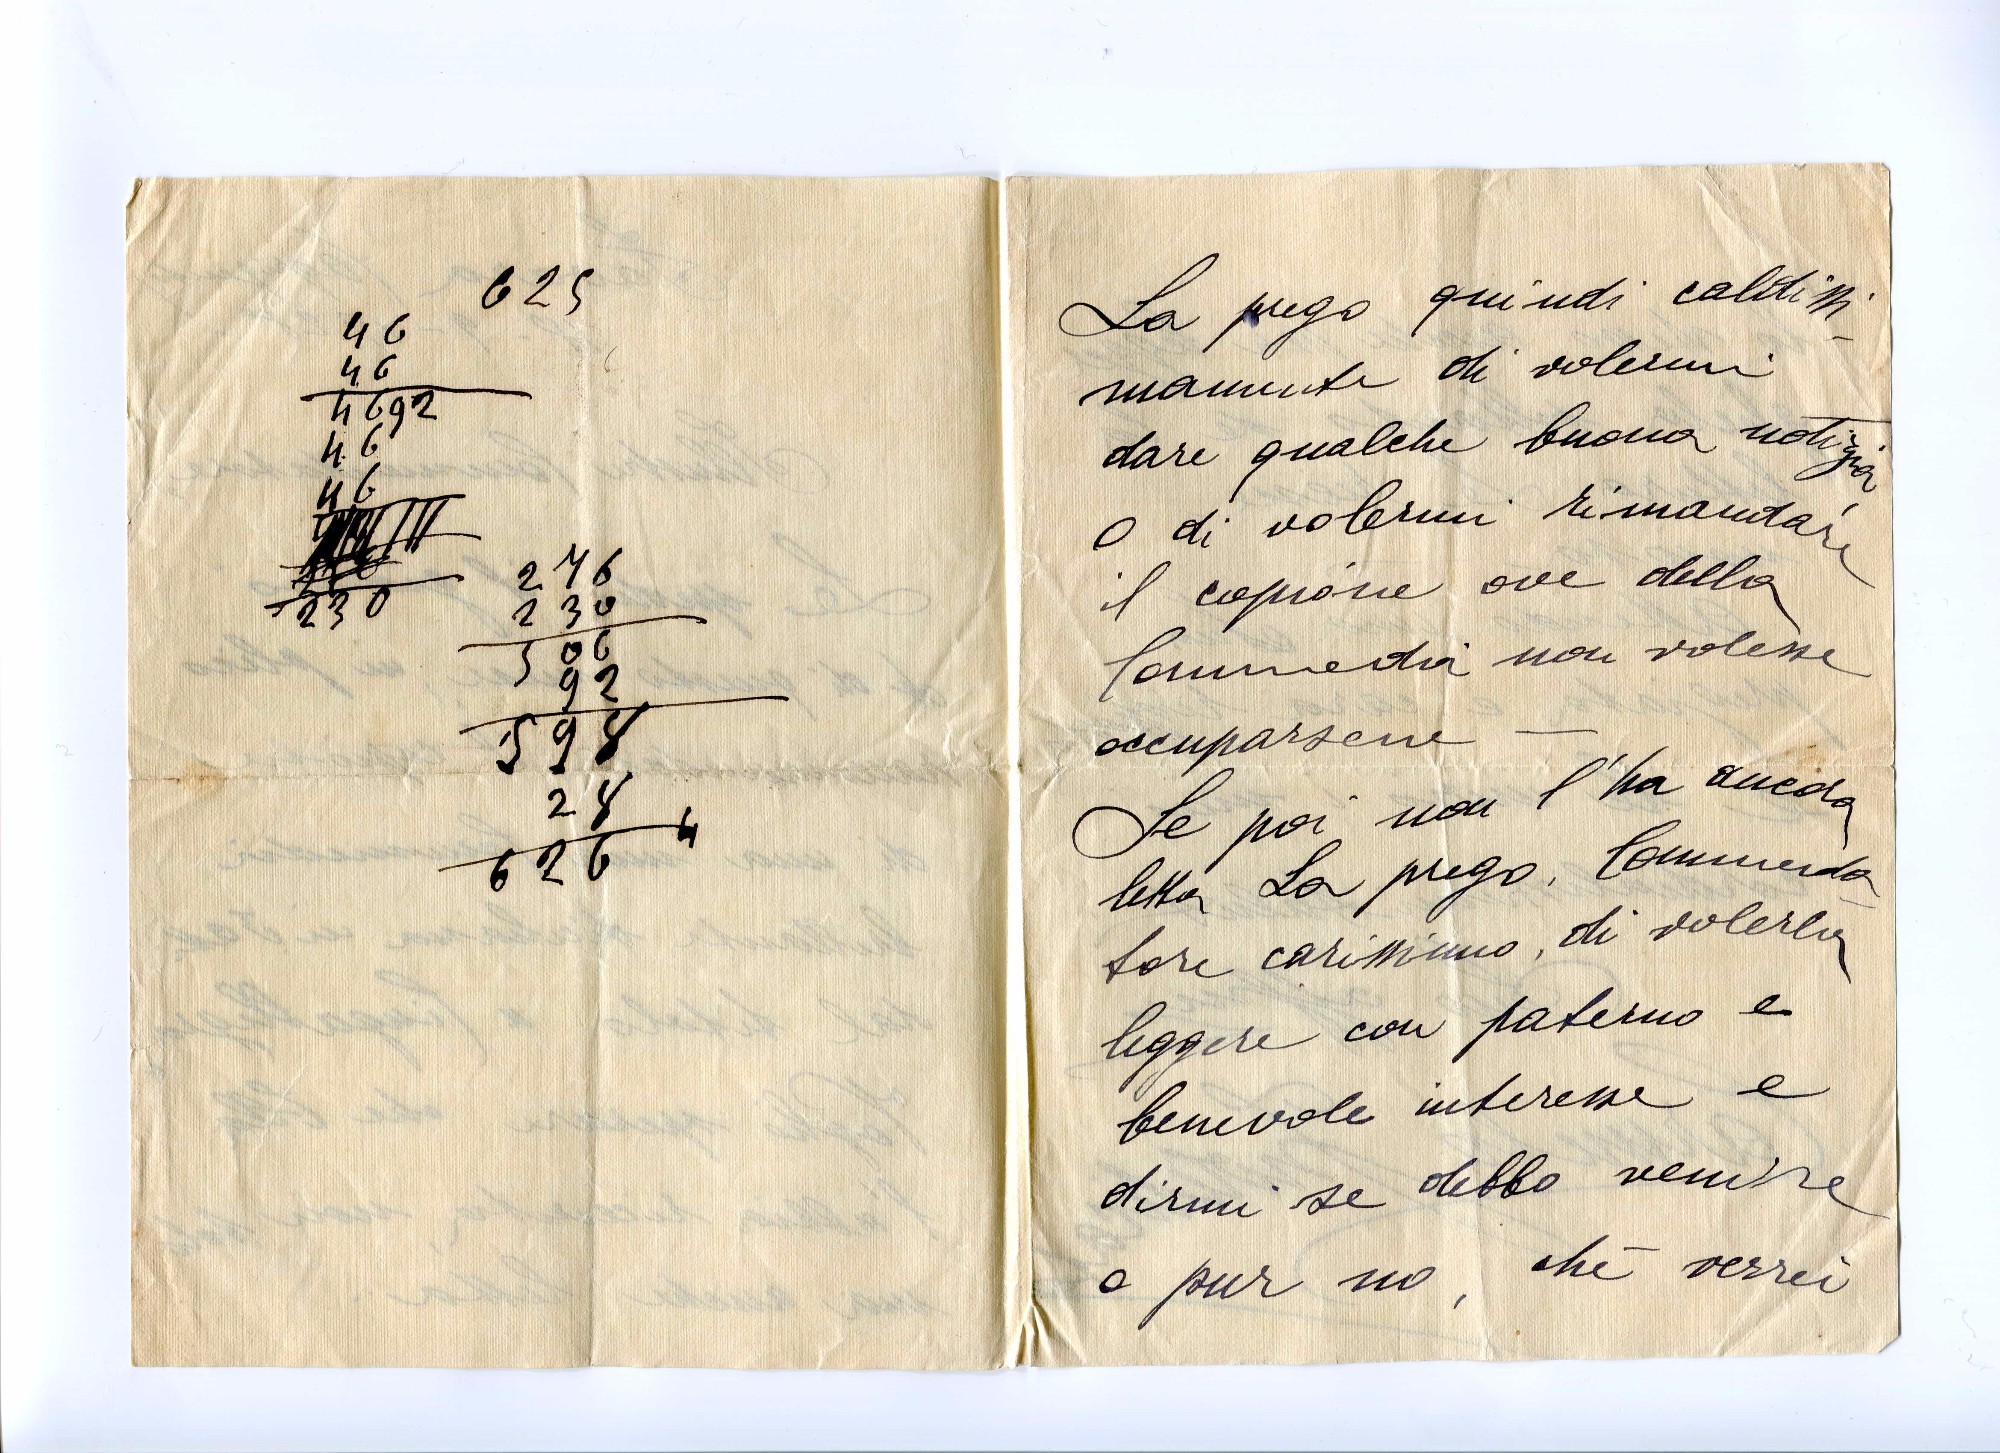 625
46
46
4692
46
46
230
276
230
506
92
598
28
4
626
La prego quindi caldissi-
mamente di volermi
dare qualche buona notizia
o di volermi rimandare
il copione ove della
Commedia non volesse
occuparsene —
Se poi non l'ha ancora
letta La prego, Commenda-
tore carissimo, di volerla
leggere con paterno e
benevole interesse e
dirmi se debbo venire
o pur no, chè verrei